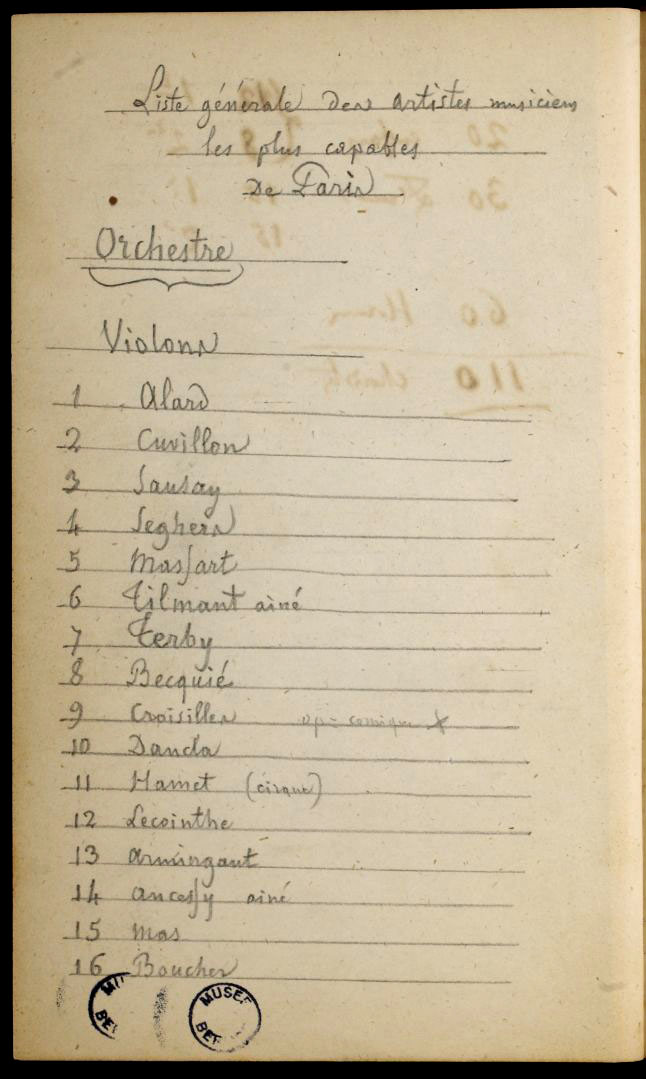 Liste générale des artistes musiciens
les plus capables
De Paris
Orchestre
Violons
1 Alard
2 Cuvillon
3 Sausay
4 Seghers
5 Massart
6 Tilmant ainé
7 Terby
8 Becquié
9 Croisilles op= comique X
10 Dancla
11 Hamet (cirque)
12 Lecointhe
13 Armingant
14 Ancessy ainé
15 Mas
16 Boucher
MUSEE